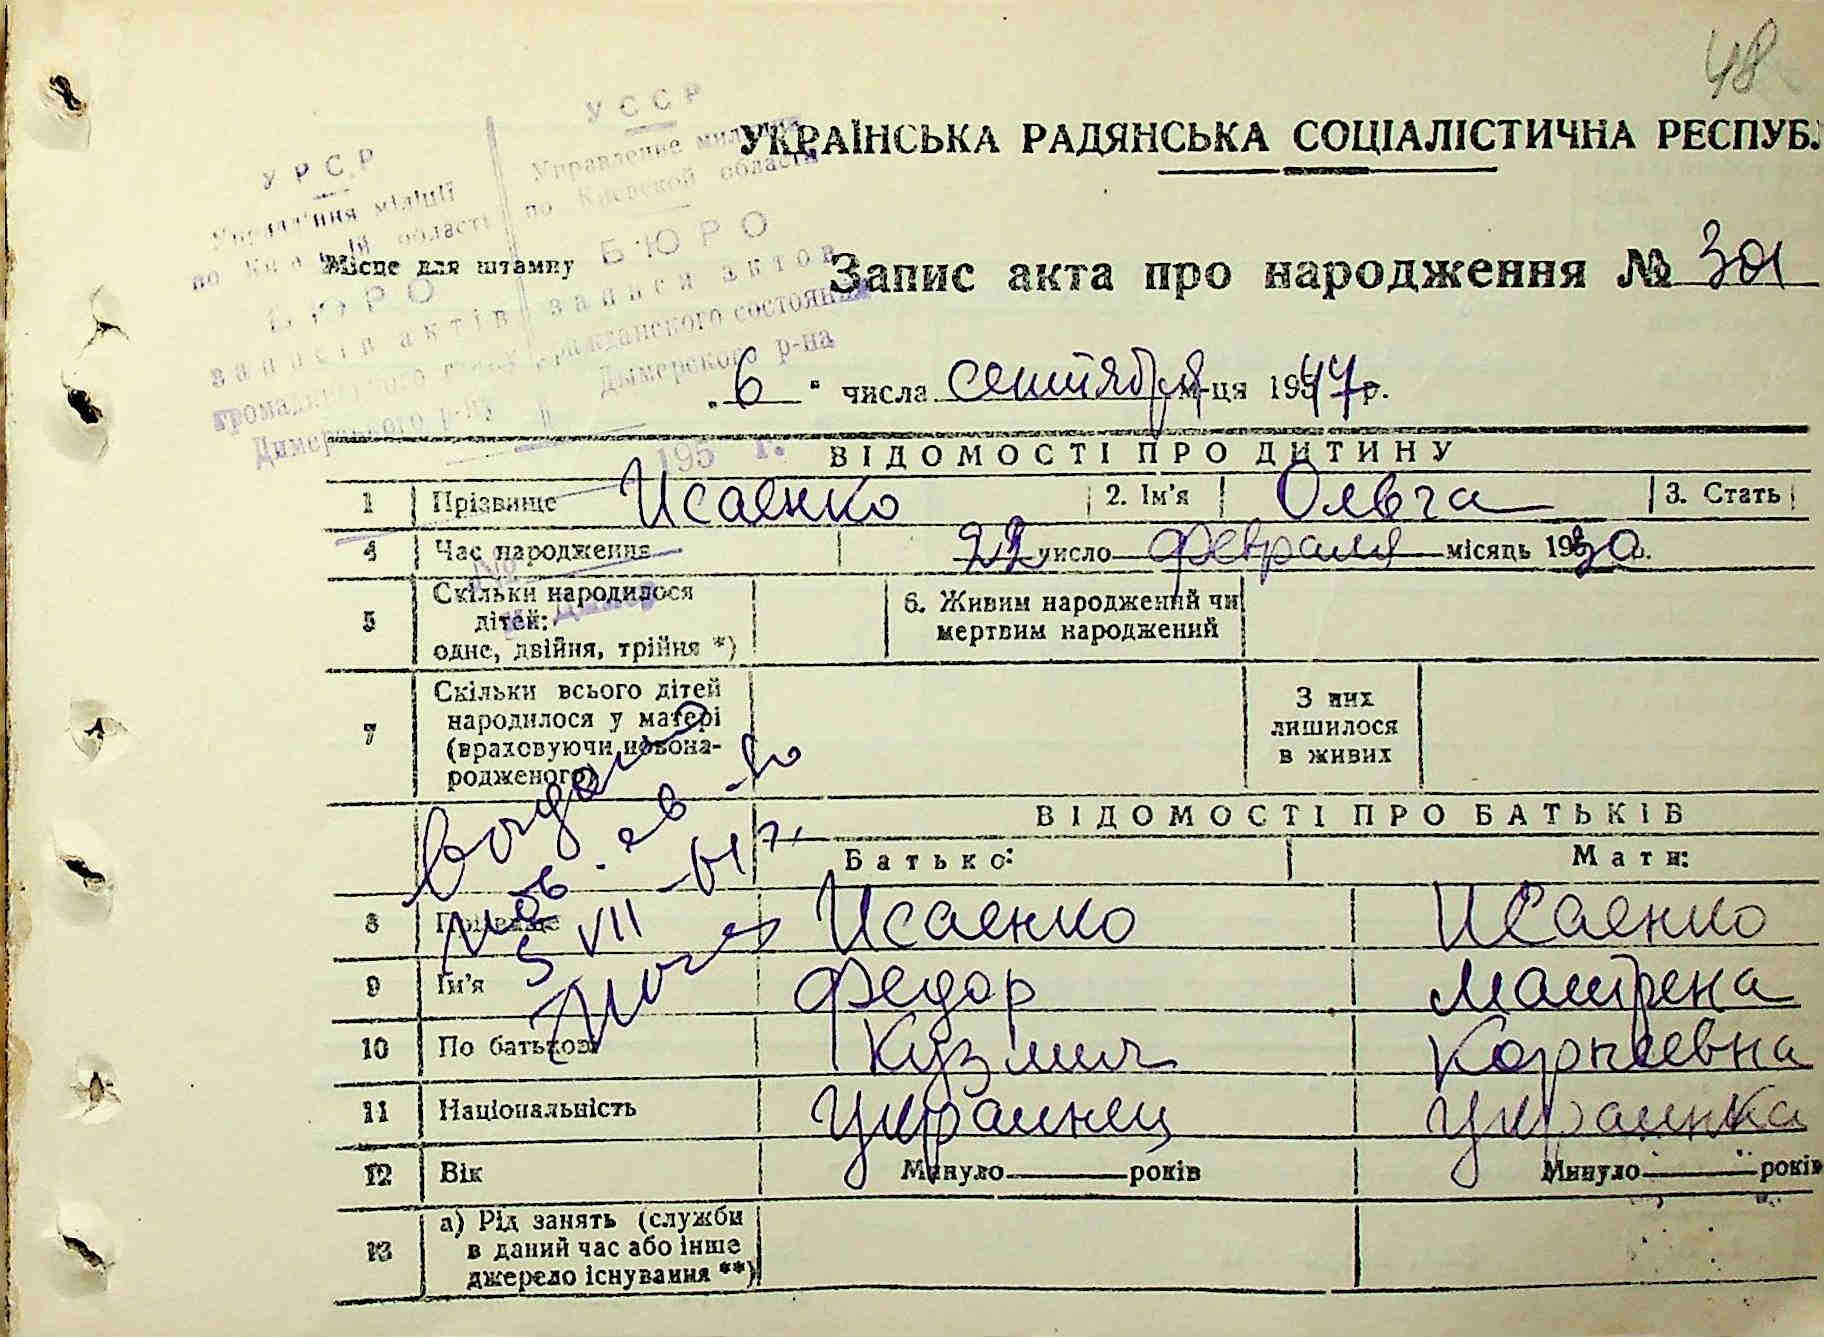 48
УКРАЇНСЬКА РАДЯНСЬКА СОЦІАЛІСТИЧНА РЕСПУБ
УРСР
Управління міліції
по Київській області
БЮРО
записів актів
громадянського стану
Димерського р-ну
УССР
Управление милиции
по Киевской области
БЮРО
записи актов
гражданского состояния
Дымерского р-на
195 г.
Місце для штампу
Запис акта про народження № 301
„6" числа сентября м-ця 1947 р.
ВІДОМОСТІ ПРО ДИТИНУ
1 Прізвище Исаенко 2. Ім'я Ольга 3. Стать
4 Час народження 22 число февраля місяць 1930 р.
5 Скільки народилося
дітей:
одне, двійня, трійня *)
6. Живим народжений чи
мертвим народжений
7 Скільки всього дітей
народилося у матері
(враховуючи новона-
родженого)
З них
лишилося
в живих
ВІДОМОСТІ ПРО БАТЬКІВ
Батько: Мати:
8 Прізвище Исаенко Исаенко
9 Ім'я Федор Матрена
10 По батькові Кузмич Корнеевна
11 Національність Украинец Украинка
12 Вік Минуло років Минуло років
13 а) Рід занять (служби
в даний час або інше
джерело існування **)
5 VII